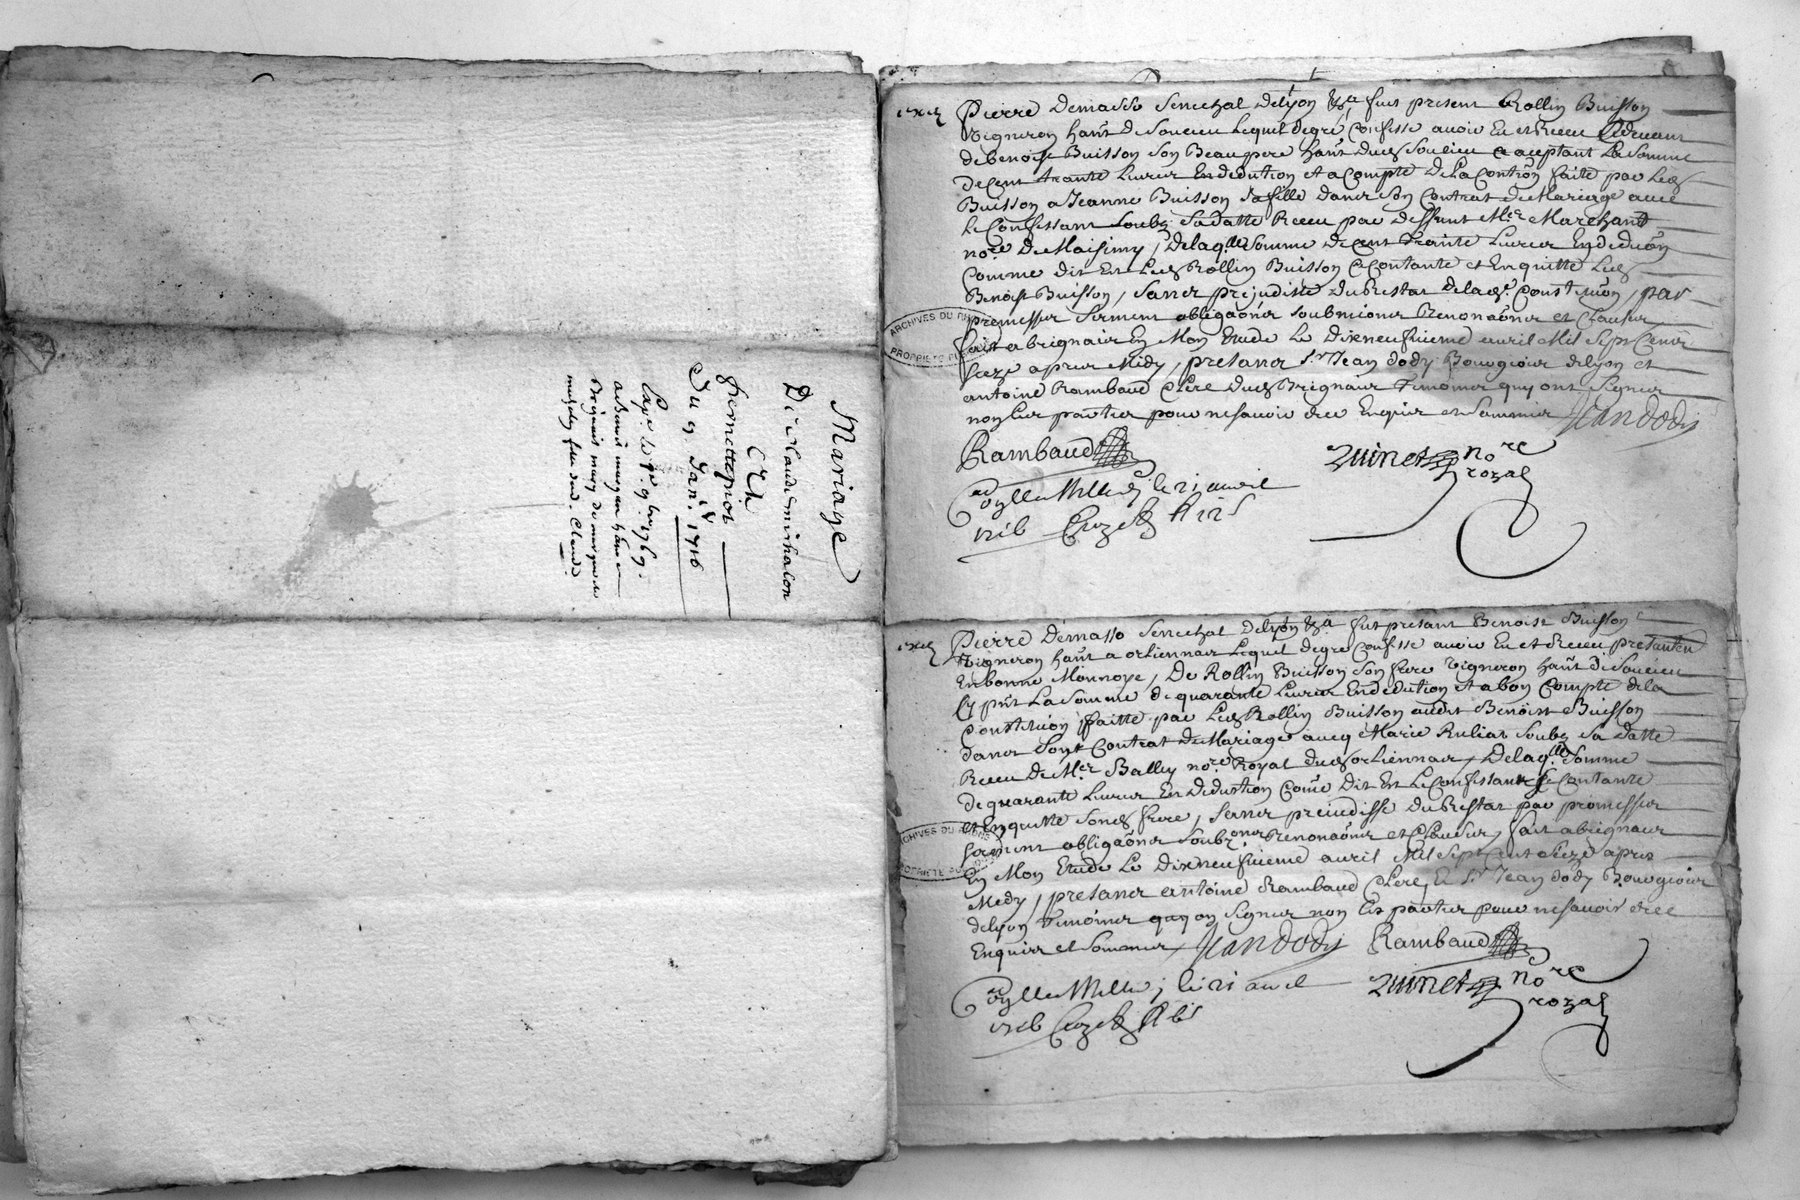 Mariage
De Claude michalon
Et
fiemette piot
Du 9 Janr. 1716
Exp. le 1r. 9bre 1769.
Brignais mary de
fille dud. Claude
exed
Pierre Demasso Senechal delyon &a fut present Rollin Buisson
Vigneron hant de Soucieu lequel degré confesse avoir Eu et Receu
de benoist Buisson son Beaupere hant dud Soucieu ce aceptant La somme
de cent trante Livres En dedution et a Compte de La Contion faite par Led
Buisson a Jeanne Buisson sa fille dans son Contrat de Mariage avec
le Confessant soubz sa datte Receu par deffunt Mer Marchant
nore De Messimy, delaqlle somme de cent trante Livres En dedution
comme dit Est Led Rollin Buisson ce contante et Enquitte Led
Benoist Buisson, sans prejudisse du Restat delade. Constituon, par
promesses serment obligaons soubmions Renonaons et Clauses
fait a brignais En Mon Etude Le Dixneufvieme avril Mil Sept Cens
seize apres Midy, presans Sr. Jean dody Bourgeois delyon et
antoine Rambaud Clerc dud Brignais temoins quy ont signes
non Les parties pour ne savoir de ce Enquis et sommes Jean Dody
Rambaud
Quinet nore
royal
Con.lle a Mille le 21 avril
1716
ARCHIVES DU RHÔNE
PROPRIÉTÉ PUBLIQUE
exed
Pierre Demasso Senechal delyon &a fut presant Benoist Buisson
Vigneron hant a orliennas Lequel degre Confesse avoir Eu et Receu presantem
En bonne Monnoye, De Rollin Buisson son frere Vigneron hant de Soucieu
Cy pnt La somme de quarante Livres En dedution et a bon Compte de la
Constituion faitte par Led Rollin Buisson audit Benoist Buisson
dans sont Contrat de Mariage avecq Marie soubz sa datte
Receu de Mer Bally nore Royal dud orliennas, Delaqlle somme
de quarante Livres En Dedustion Come Dit Est Le Confessant se Contante
et Enquitte sond frere, sans prejudisse du Restat par promesses
serment obligaons soubzons Renonaons et Clauses, fait a brignais
En Mon Etude Le Dixneufvieme avril Mil Sept Cent Seize apres
Midy, presans antoine Rambaud Clerc, Et Sr Jean Dody Bourgeois
delyon temoins quy on signes non Les parties pour ne savoir de ce
Enquis et sommes Jean Dody Rambaud
Quinet nore
royal
Con.lle a Mille le 21 avril
1716
ARCHIVES DU RHÔNE
PROPRIÉTÉ PUBLIQUE